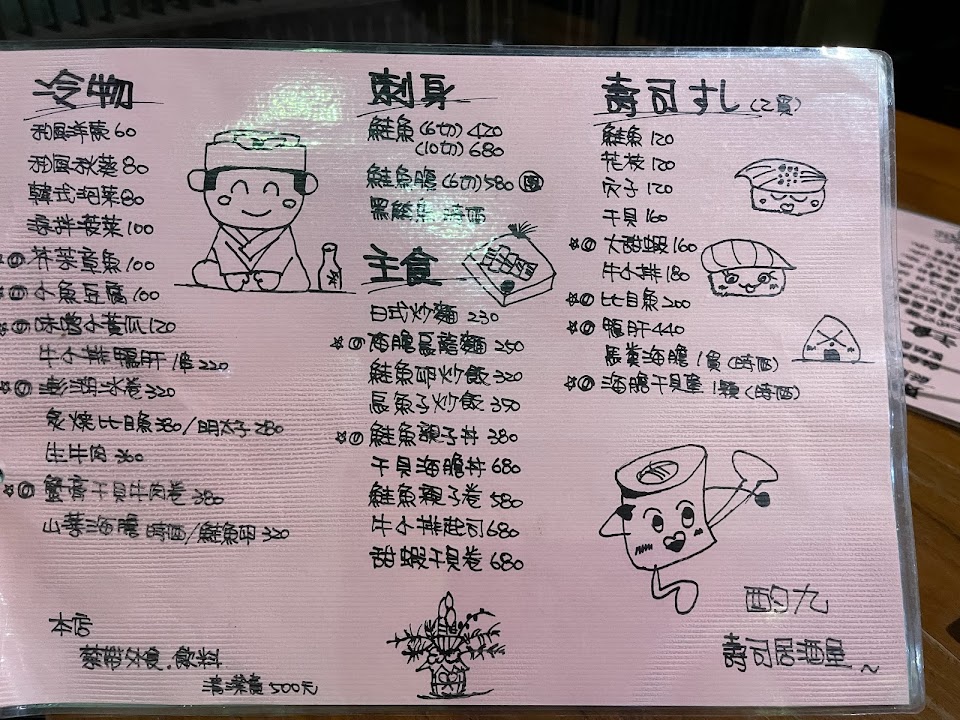 冷昔
和風洋蔥 60
和風秋葵 80
韓式泡菜 80
涼拌菠菜 100
芥茉章魚 100
小魚豆腐 100
味噌小黃瓜 120
牛小排鴨肝 1串 220
澎湖冰卷 320
炙燒比目魚 380/明太子 280
生牛肉 360
蟹膏干貝牛肉卷 380
山葵海膽 時價/鮭魚卵 320
本店
禁戒外食.飲料
清潔費500元
刺身
鮭魚 (6切) 420
(10切) 680
鮭魚腹 (6切) 580
黑鮪魚 時價
主食
日式炒麵 230
海膽烏蕎麵 250
鮭魚卵炒飯 320
辰魚子炒飯 350
鮭魚親子丼 380
干貝海膽丼 680
鮭魚親子卷 580
牛小排壽司 680
甜蝦干貝卷 680
壽司すし (乙貫)
鮭魚 120
花枝 120
穴子 120
干貝 160
大醋蝦 160
牛小排 180
比目魚 200
鴨肝 440
馬糞海膽 1貫 (時價)
海膽干貝 1顆 (時價)
酌九
壽司居酒屋~